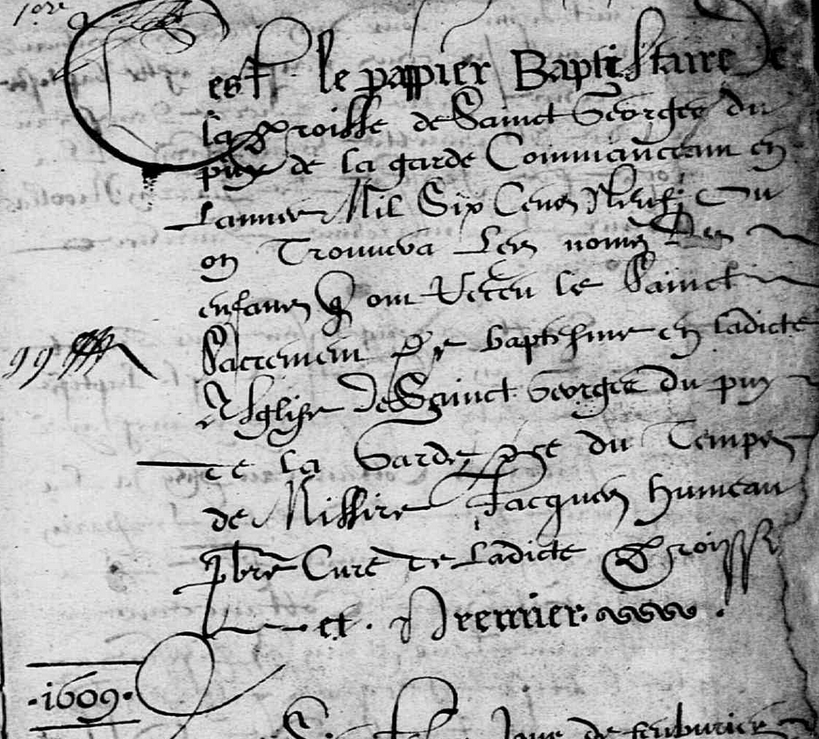 Cest le pappier Baptistaire de
la proisse de Sainct Georges du
puy de la garde Commanceant en
Lannee Mil Six Cens Neufz Ou
on Trouvera Les noms Des
enfans q ont Receu le Sainct
Sacrement de baptesme en ladicte
Esglise de Sainct Georges du puy
de la Garde du Temps
de Missire Jacques humeau
pbre Cure de Ladicte proisse
et premier
1609
Jour de febvrier